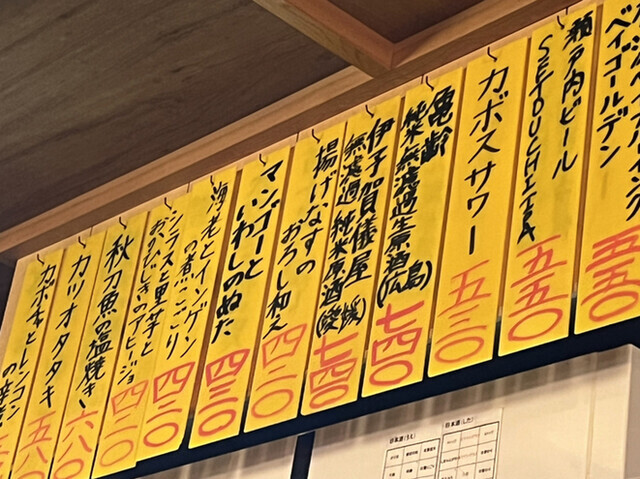 ベイゴールデン
五五〇
瀬戸内ビール
SETOUCHI IPA
五五〇
カボスサワー
五三〇
亀齢
純米無濾過生原酒(広島)
七四〇
伊予賀儀屋
無濾過純米原酒(愛媛)
七四〇
揚げなすの
おろし和え
四二〇
マンゴーと
いわしのぬた
四三〇
海老とインゲン
の煮こごり
四二〇
シラスと里芋と
おかひじきのアヒージョ
四二〇
秋刀魚の塩焼き
六八〇
カツオタタキ
五八〇
カボチャとレンコン
日本酒(うえ)
日本酒(した)